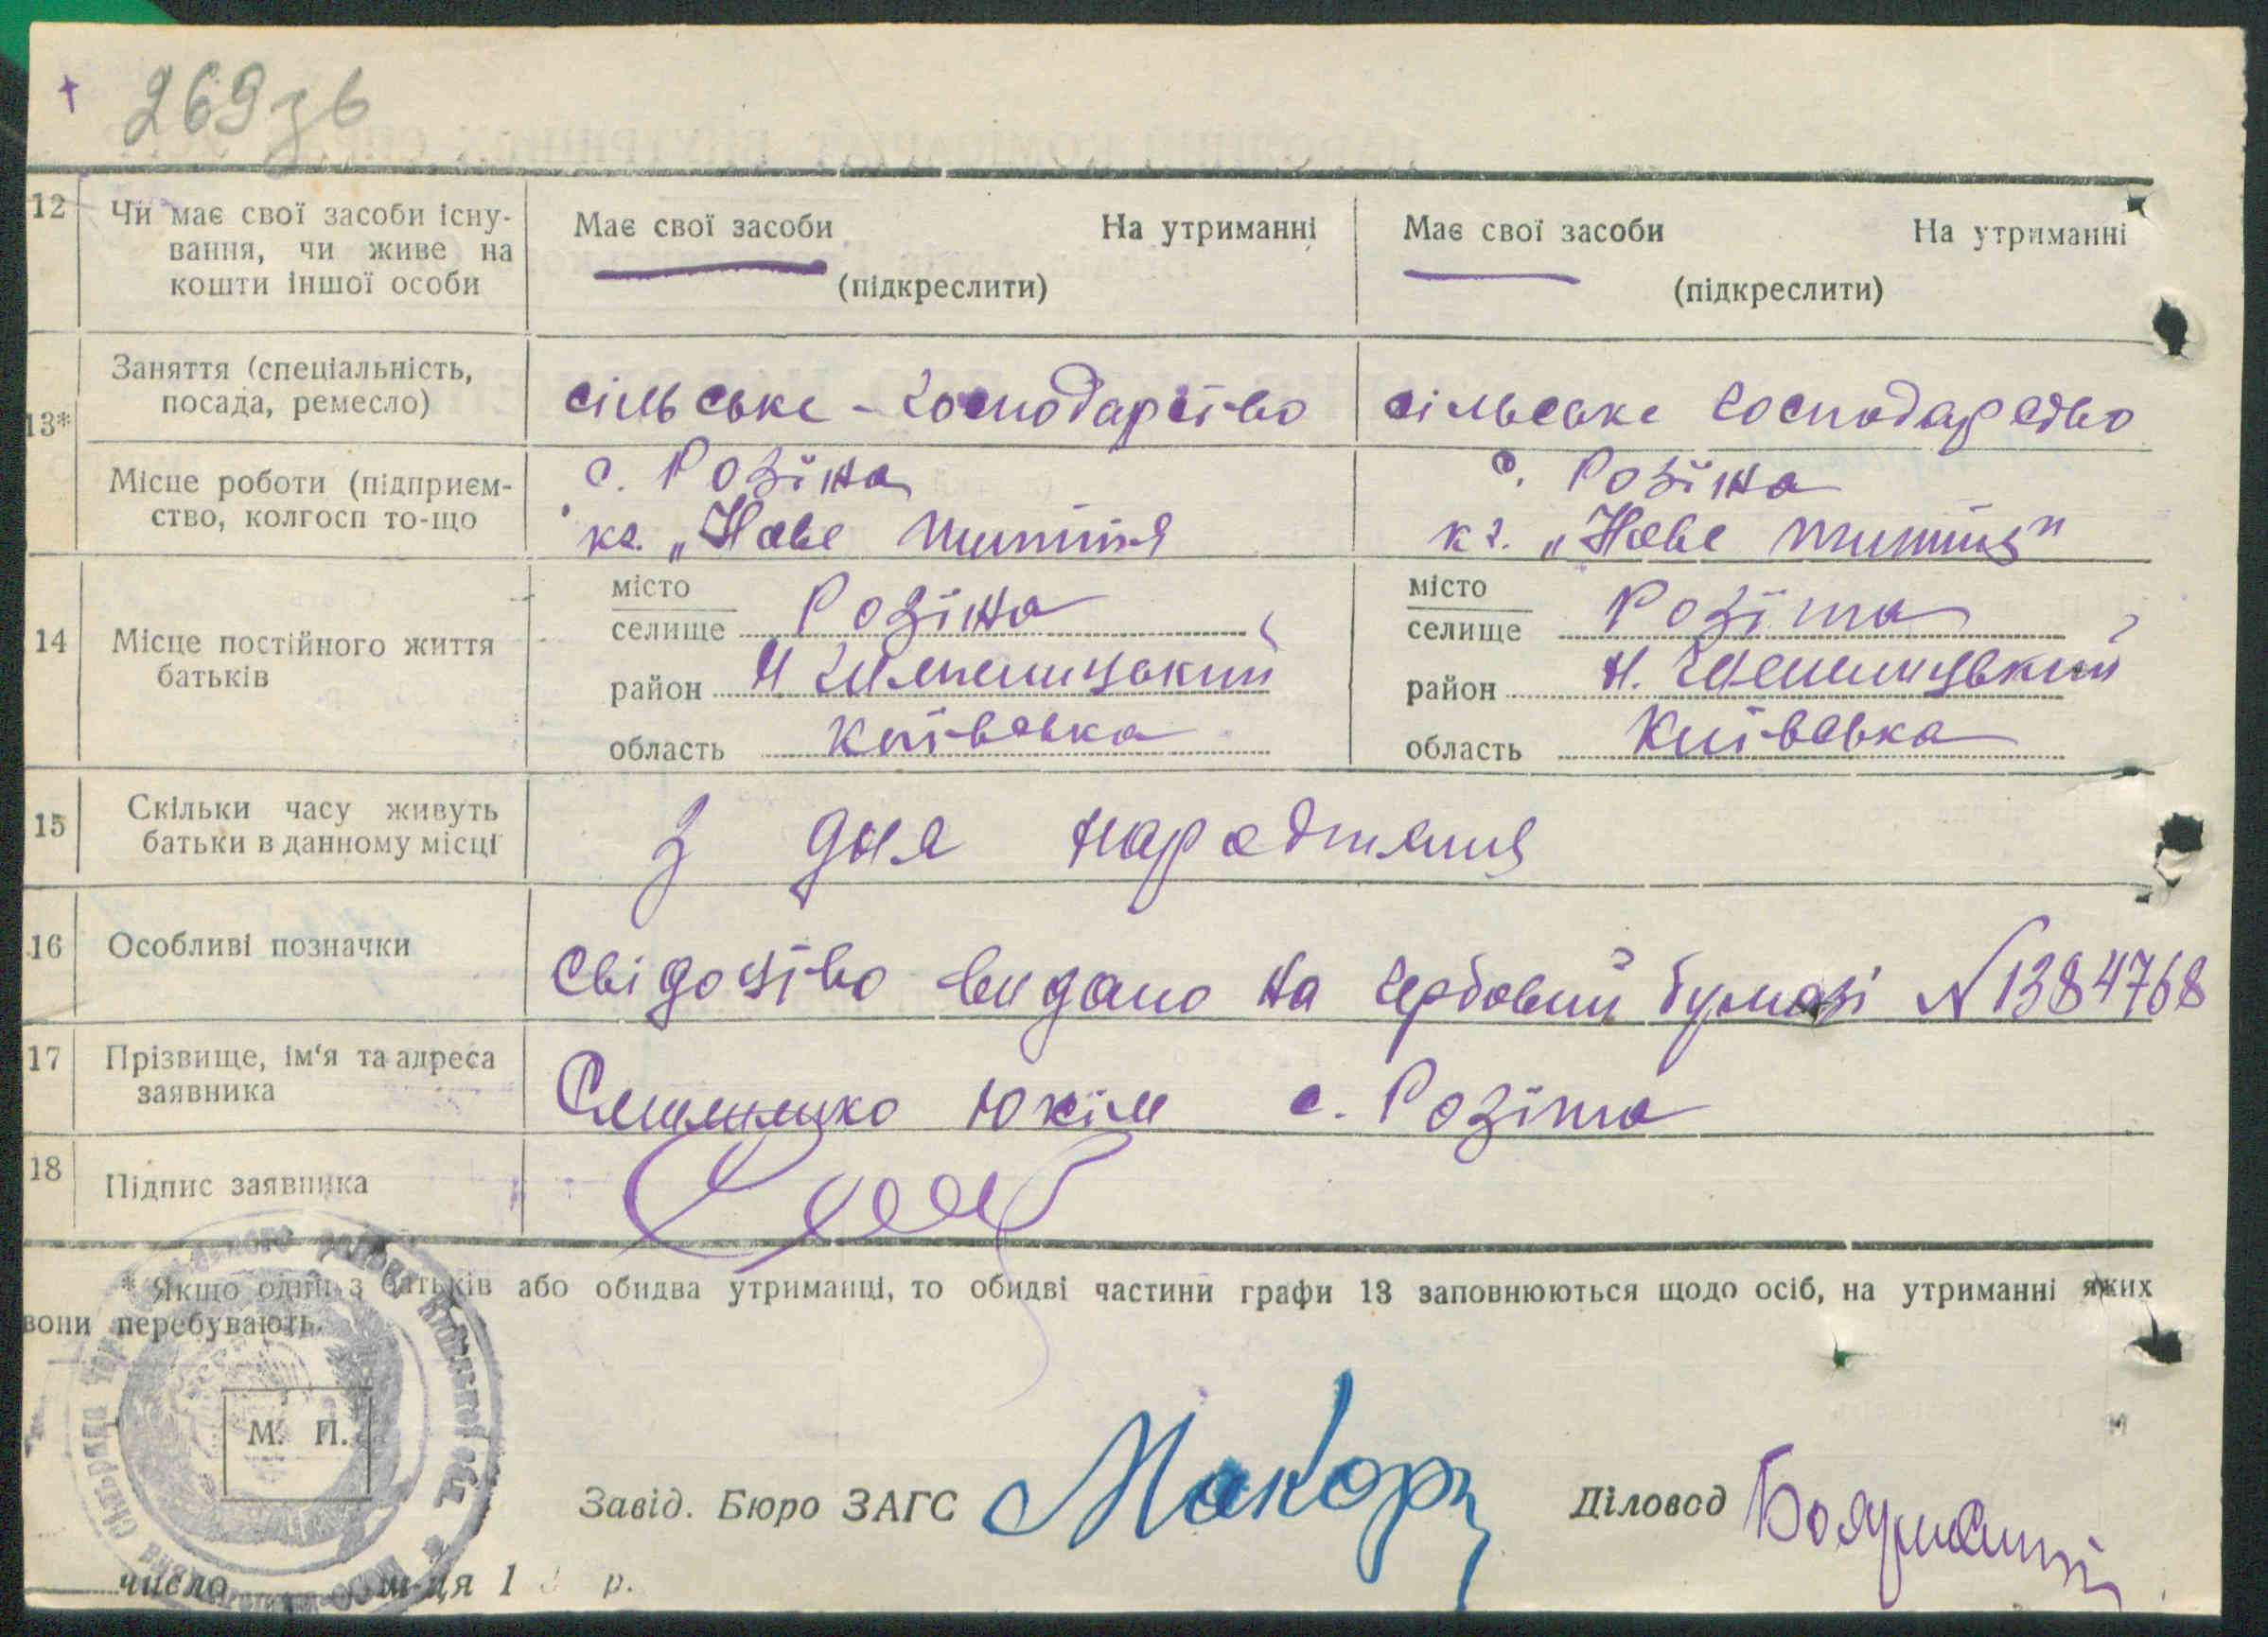 269 зв
12 Чи має свої засоби існу-
вання, чи живе на
кошти іншої особи
Має свої засоби На утриманні
(підкреслити)
Має свої засоби На утриманні
(підкреслити)
13*
Заняття (спеціальність,
посада, ремесло)
сільське - господарство
сільське господарство
Місце роботи (підприєм-
ство, колгосп то-що
с. Розіна
кг. „Нове життя
с. Розіна
кг. „Нове життя"
14 Місце постійного життя
батьків
місто
селище Розіна
район
область Київська
місто
селище Розіна
район
область Київська
15 Скільки часу живуть
батьки в данному місці
з дня народження
16 Особливі позначки
Свідоцтво видано на гербовий бумазі N 1384768
17 Прізвище, ім'я та адреса
заявника
Юхім с. Розіна
18 Підпис заявника
* Якщо один з батьків або обидва утриманці, то обидві частини графи 13 заповнюються щодо осіб, на утриманні яких
вони перебувають.
М. П.
Завід. Бюро ЗАГС
Діловод
число м-ця 1 р.